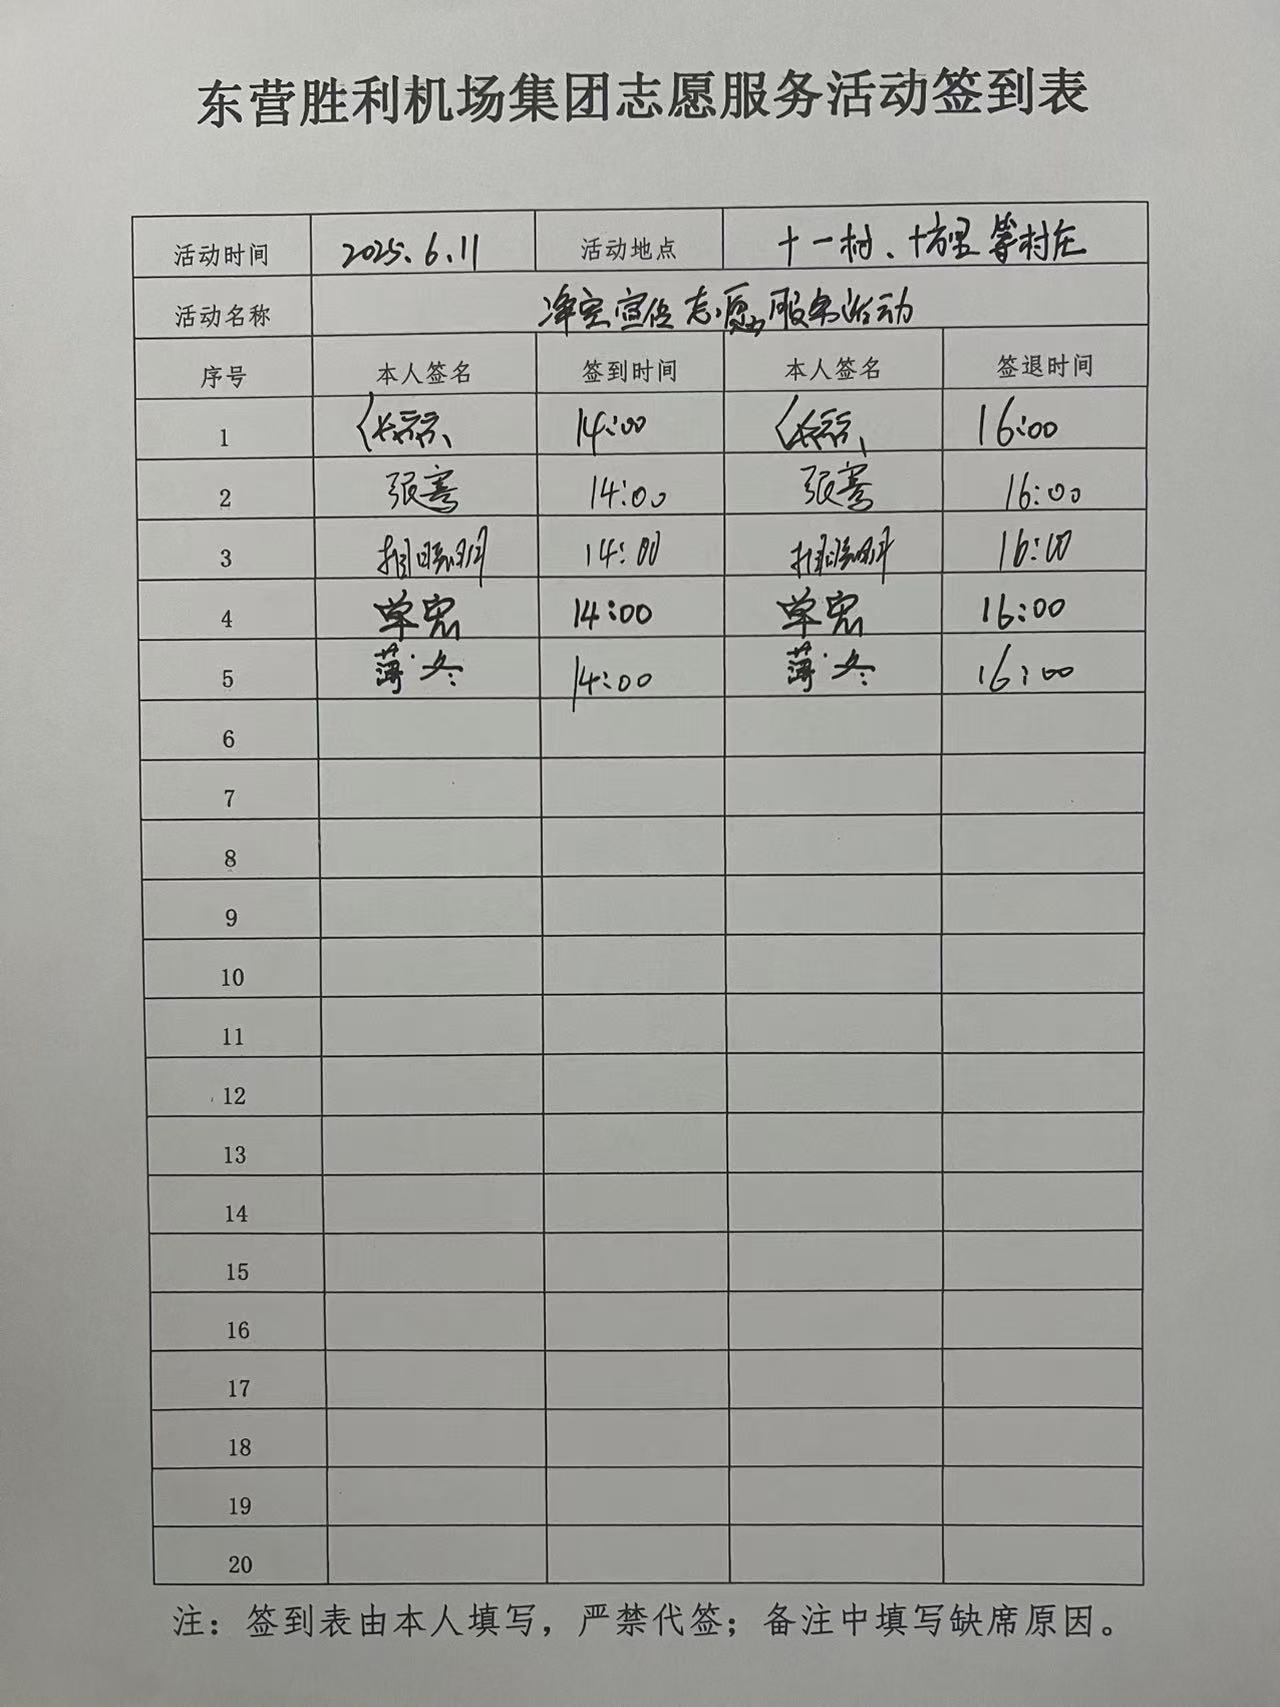 东营胜利机场集团志愿服务活动签到表
活动时间 2025.6.11 活动地点 十一村、十方里等村庄
活动名称 净空宣传志愿服务活动
序号 本人签名 签到时间 本人签名 签退时间
1 14:00 16:00
2 张骞 14:00 张骞 16:00
3 14:00 16:00
4 单宏 14:00 单宏 16:00
5 薄冬 14:00 薄冬 16:00
6
7
8
9
10
11
12
13
14
15
16
17
18
19
20
注：签到表由本人填写，严禁代签；备注中填写缺席原因。